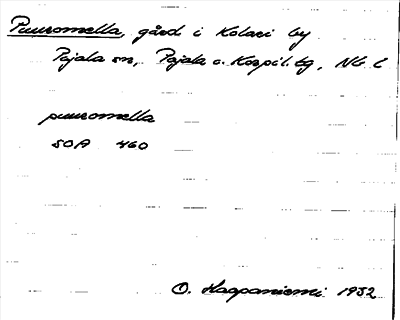 Puuromella, gård i Kolari by
Pajala sn, Pajala o. Korpil. tg, Nb. l
puuromella
SOA 460
O. Haapaniemi 1932